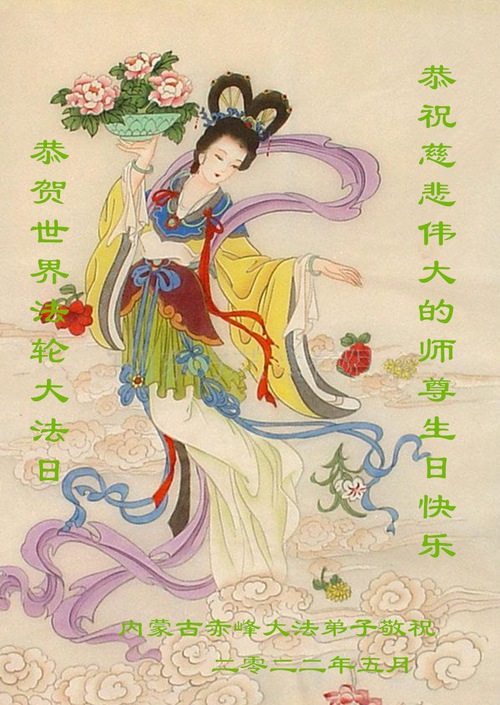 恭祝慈悲伟大的师尊生日快乐
恭贺世界法轮大法日
内蒙古赤峰大法弟子敬祝
二零二二年五月